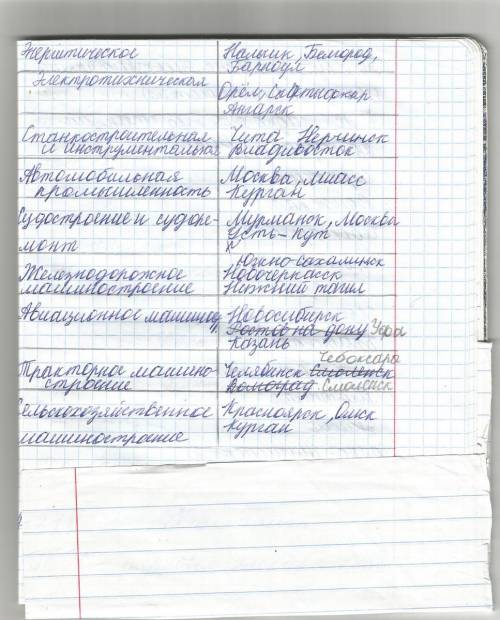 Энергтическое
Нальчик, Белгород,
Барнаул
Электротихническая
Орёл, Сыктывкар
Ангарск
Станкостроительная
и инструментальная
Чита Нерчинск
Владивосток
Автомобильная
промышленность
Москва, Миасс
Курган
Судостроение и судоре-
монт
Мурманск, Москва
Усть-Кут
Южно-сахалинск
Железнодорожное
машиностроение
Новочеркасск
Нижний тагил
Авиационное машиност
Новосибирск
Ростов на дону Уфа
Казань
Тракторное машино-
строение
Чебоксары
Челябинск Смоленск
Волгоград Смоленск
Сельскохозяйственное
машиностроение
Красноярск, Омск
Курган